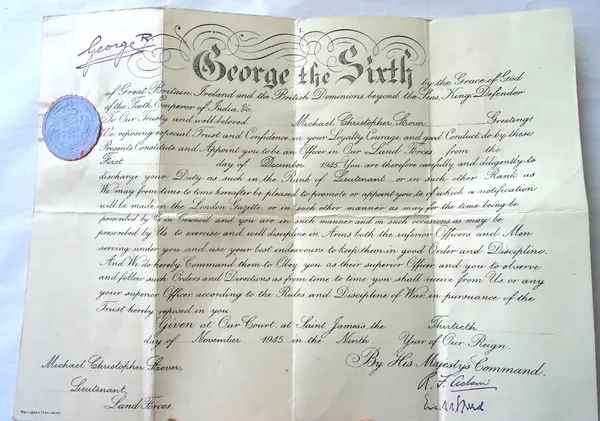 George R.
George the Sixth by the Grace of God
of Great Britain, Ireland and the British Dominions beyond the Seas, King, Defender
of the Faith, Emperor of India, &c.
To Our Trusty and well beloved Michael Christopher Strover, Greetings
We, reposing especial Trust and Confidence in your Loyalty, Courage, and good Conduct, do by these
Presents Constitute and Appoint you to be an Officer in Our Land Forces from the
First day of December 1945. You are therefore carefully and diligently to
discharge your Duty as such in the Rank of Lieutenant or in such other Rank as
We may from time to time hereafter be pleased to promote or appoint you to, of which a notification
will be made in the London Gazette, or in such other manner as may for the time being be
prescribed by Us in Council, and you are in such manner and on such occasions as may be
prescribed by Us to exercise and well discipline in Arms both the inferior Officers and Men
serving under you and use your best endeavours to keep them in good Order and Discipline.
And We do hereby Command them to Obey you as their superior Officer, and you to observe
and follow such Orders and Directions as from time to time you shall receive from Us, or any
your superior Officer, according to the Rules and Discipline of War, in pursuance of the
Trust hereby reposed in you.
Given at Our Court, at Saint James's, the Thirtieth
day of November 1945 in the Ninth Year of Our Reign.
By His Majesty's Command.
Michael Christopher Strover,
Lieutenant,
Land Forces.
R. F. Adam